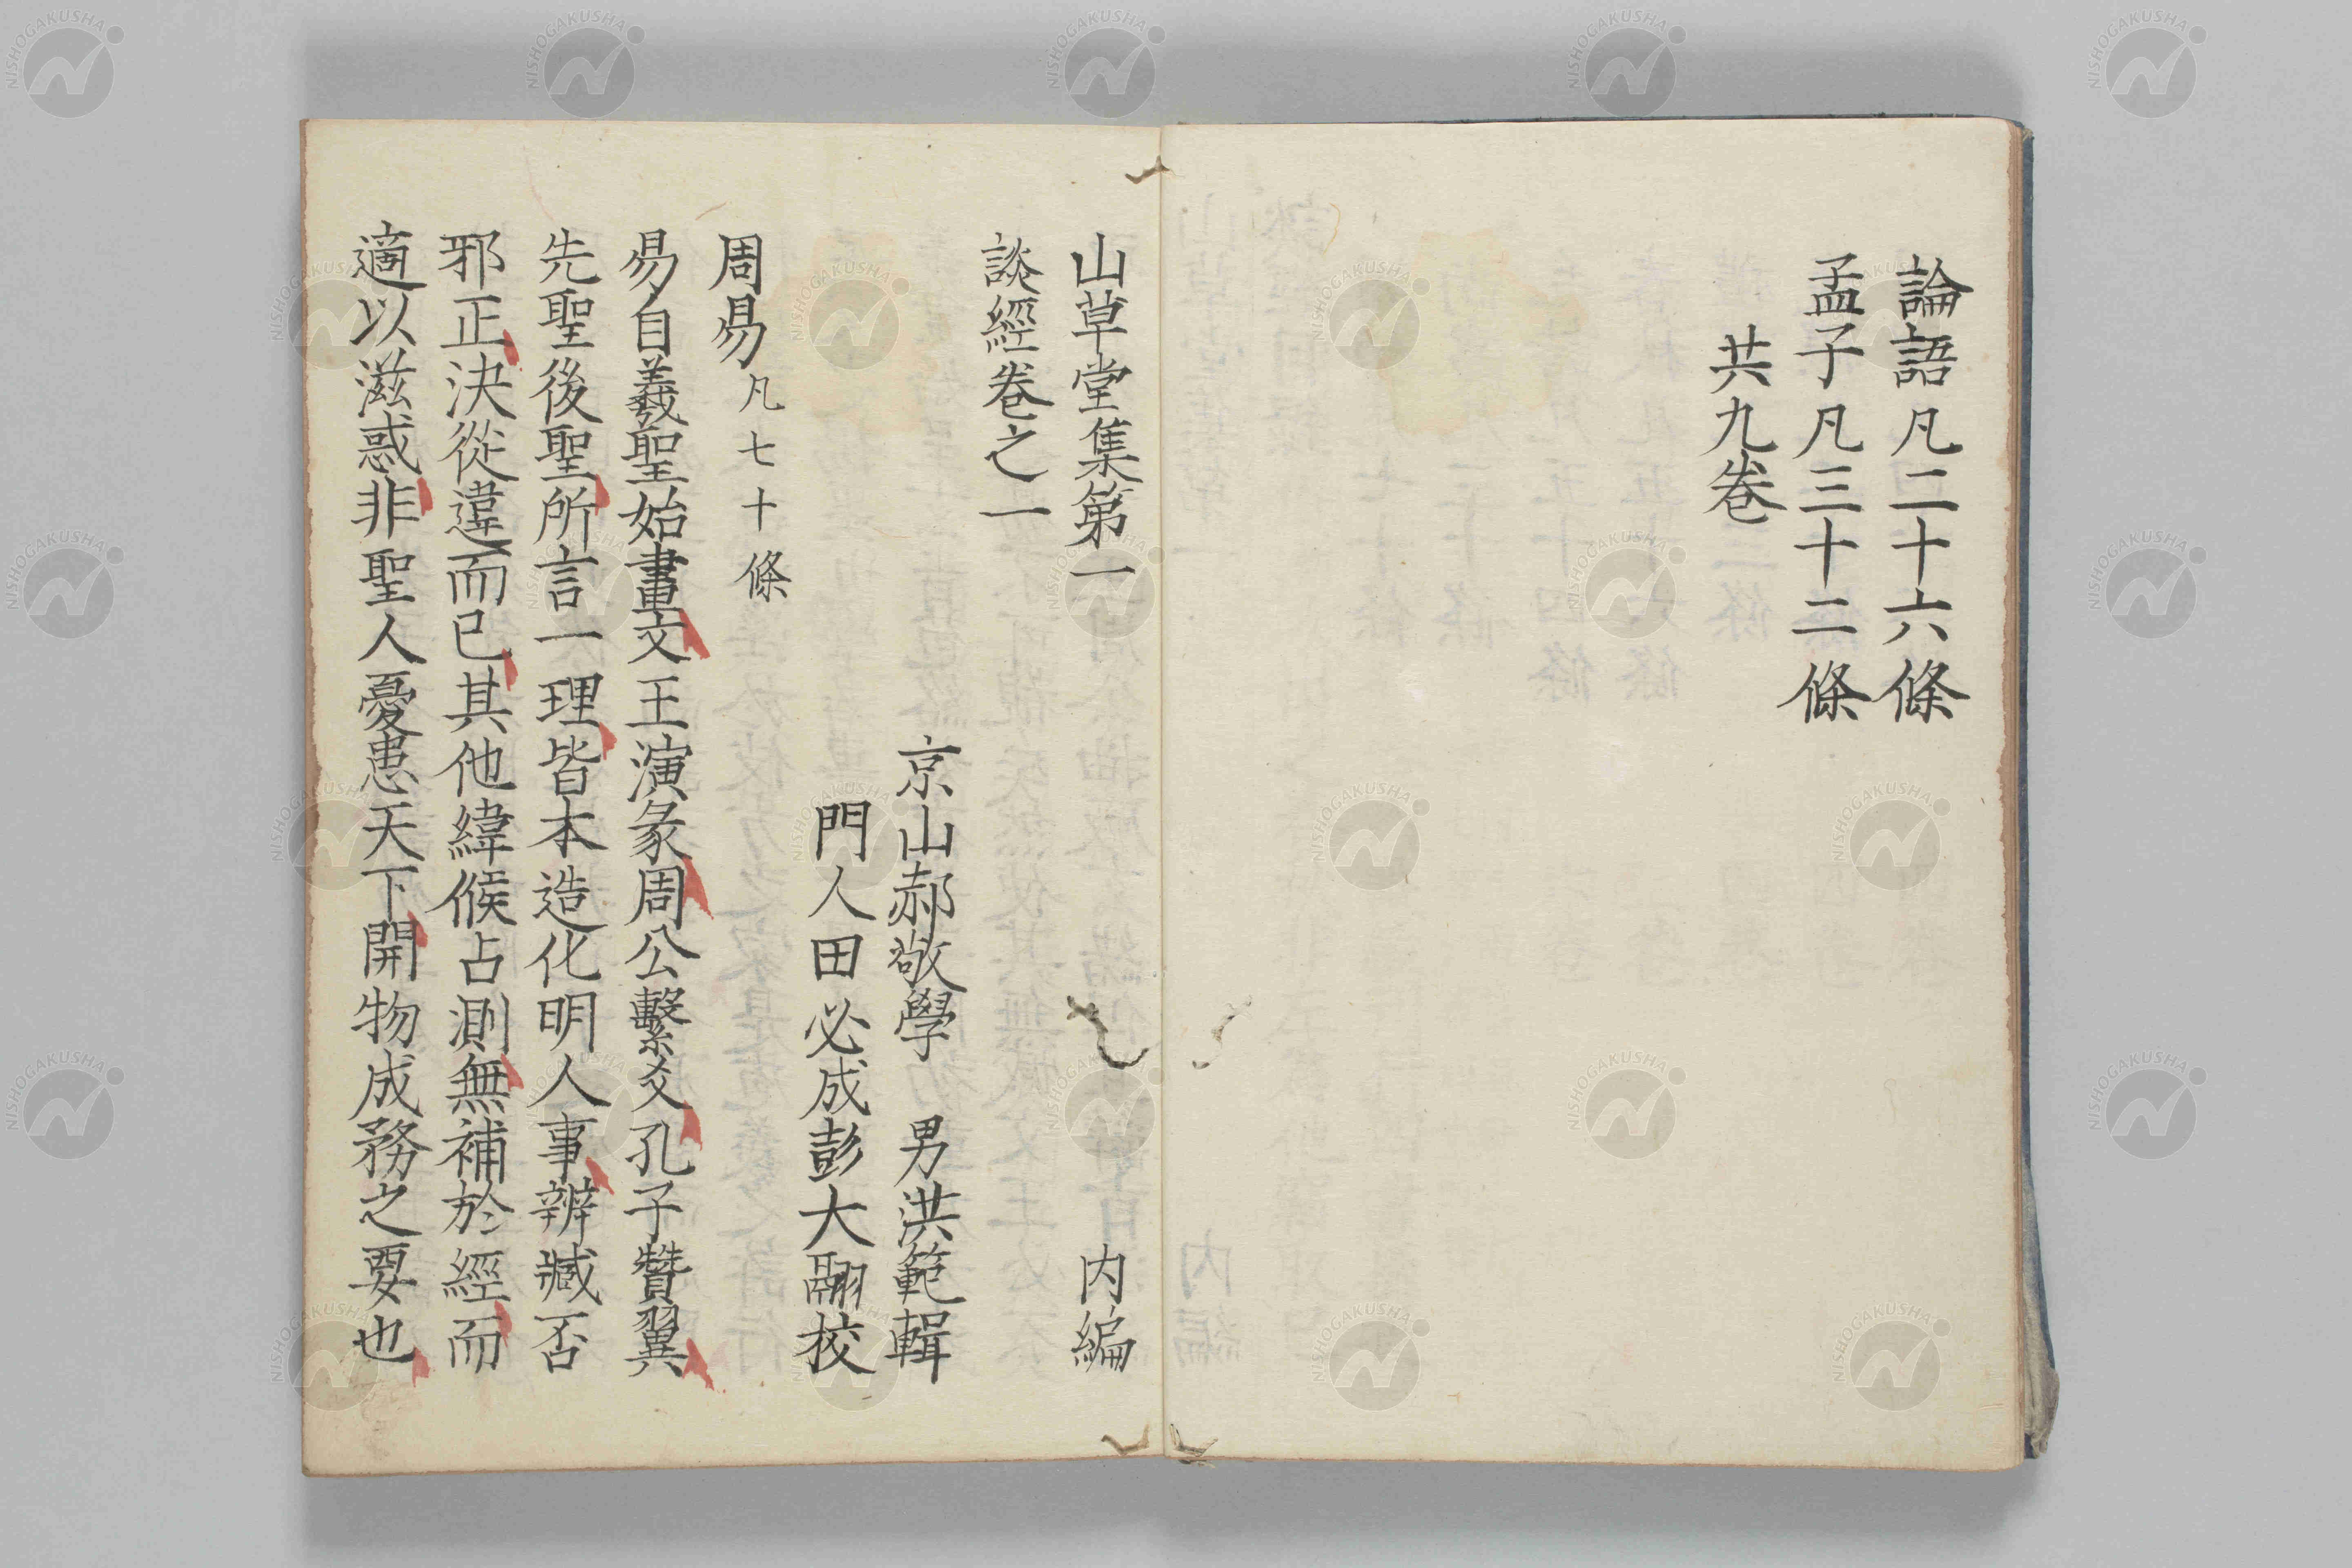 論語凡二十六條
孟子凡三十二條
共九卷
山草堂集第一 内編
談經卷之一
京山郝敬學 男洪範輯
門人田必成彭大翮校
周易凡七十條
易自羲聖始畫文王演彖周公繫爻孔子贊翼
先聖後聖所言一理皆本造化明人事辨臧否
邪正決從違而已其他緯候占測無補於經而
適以滋惑非聖人憂患天下開物成務之要也
NISHOGAKUSHA